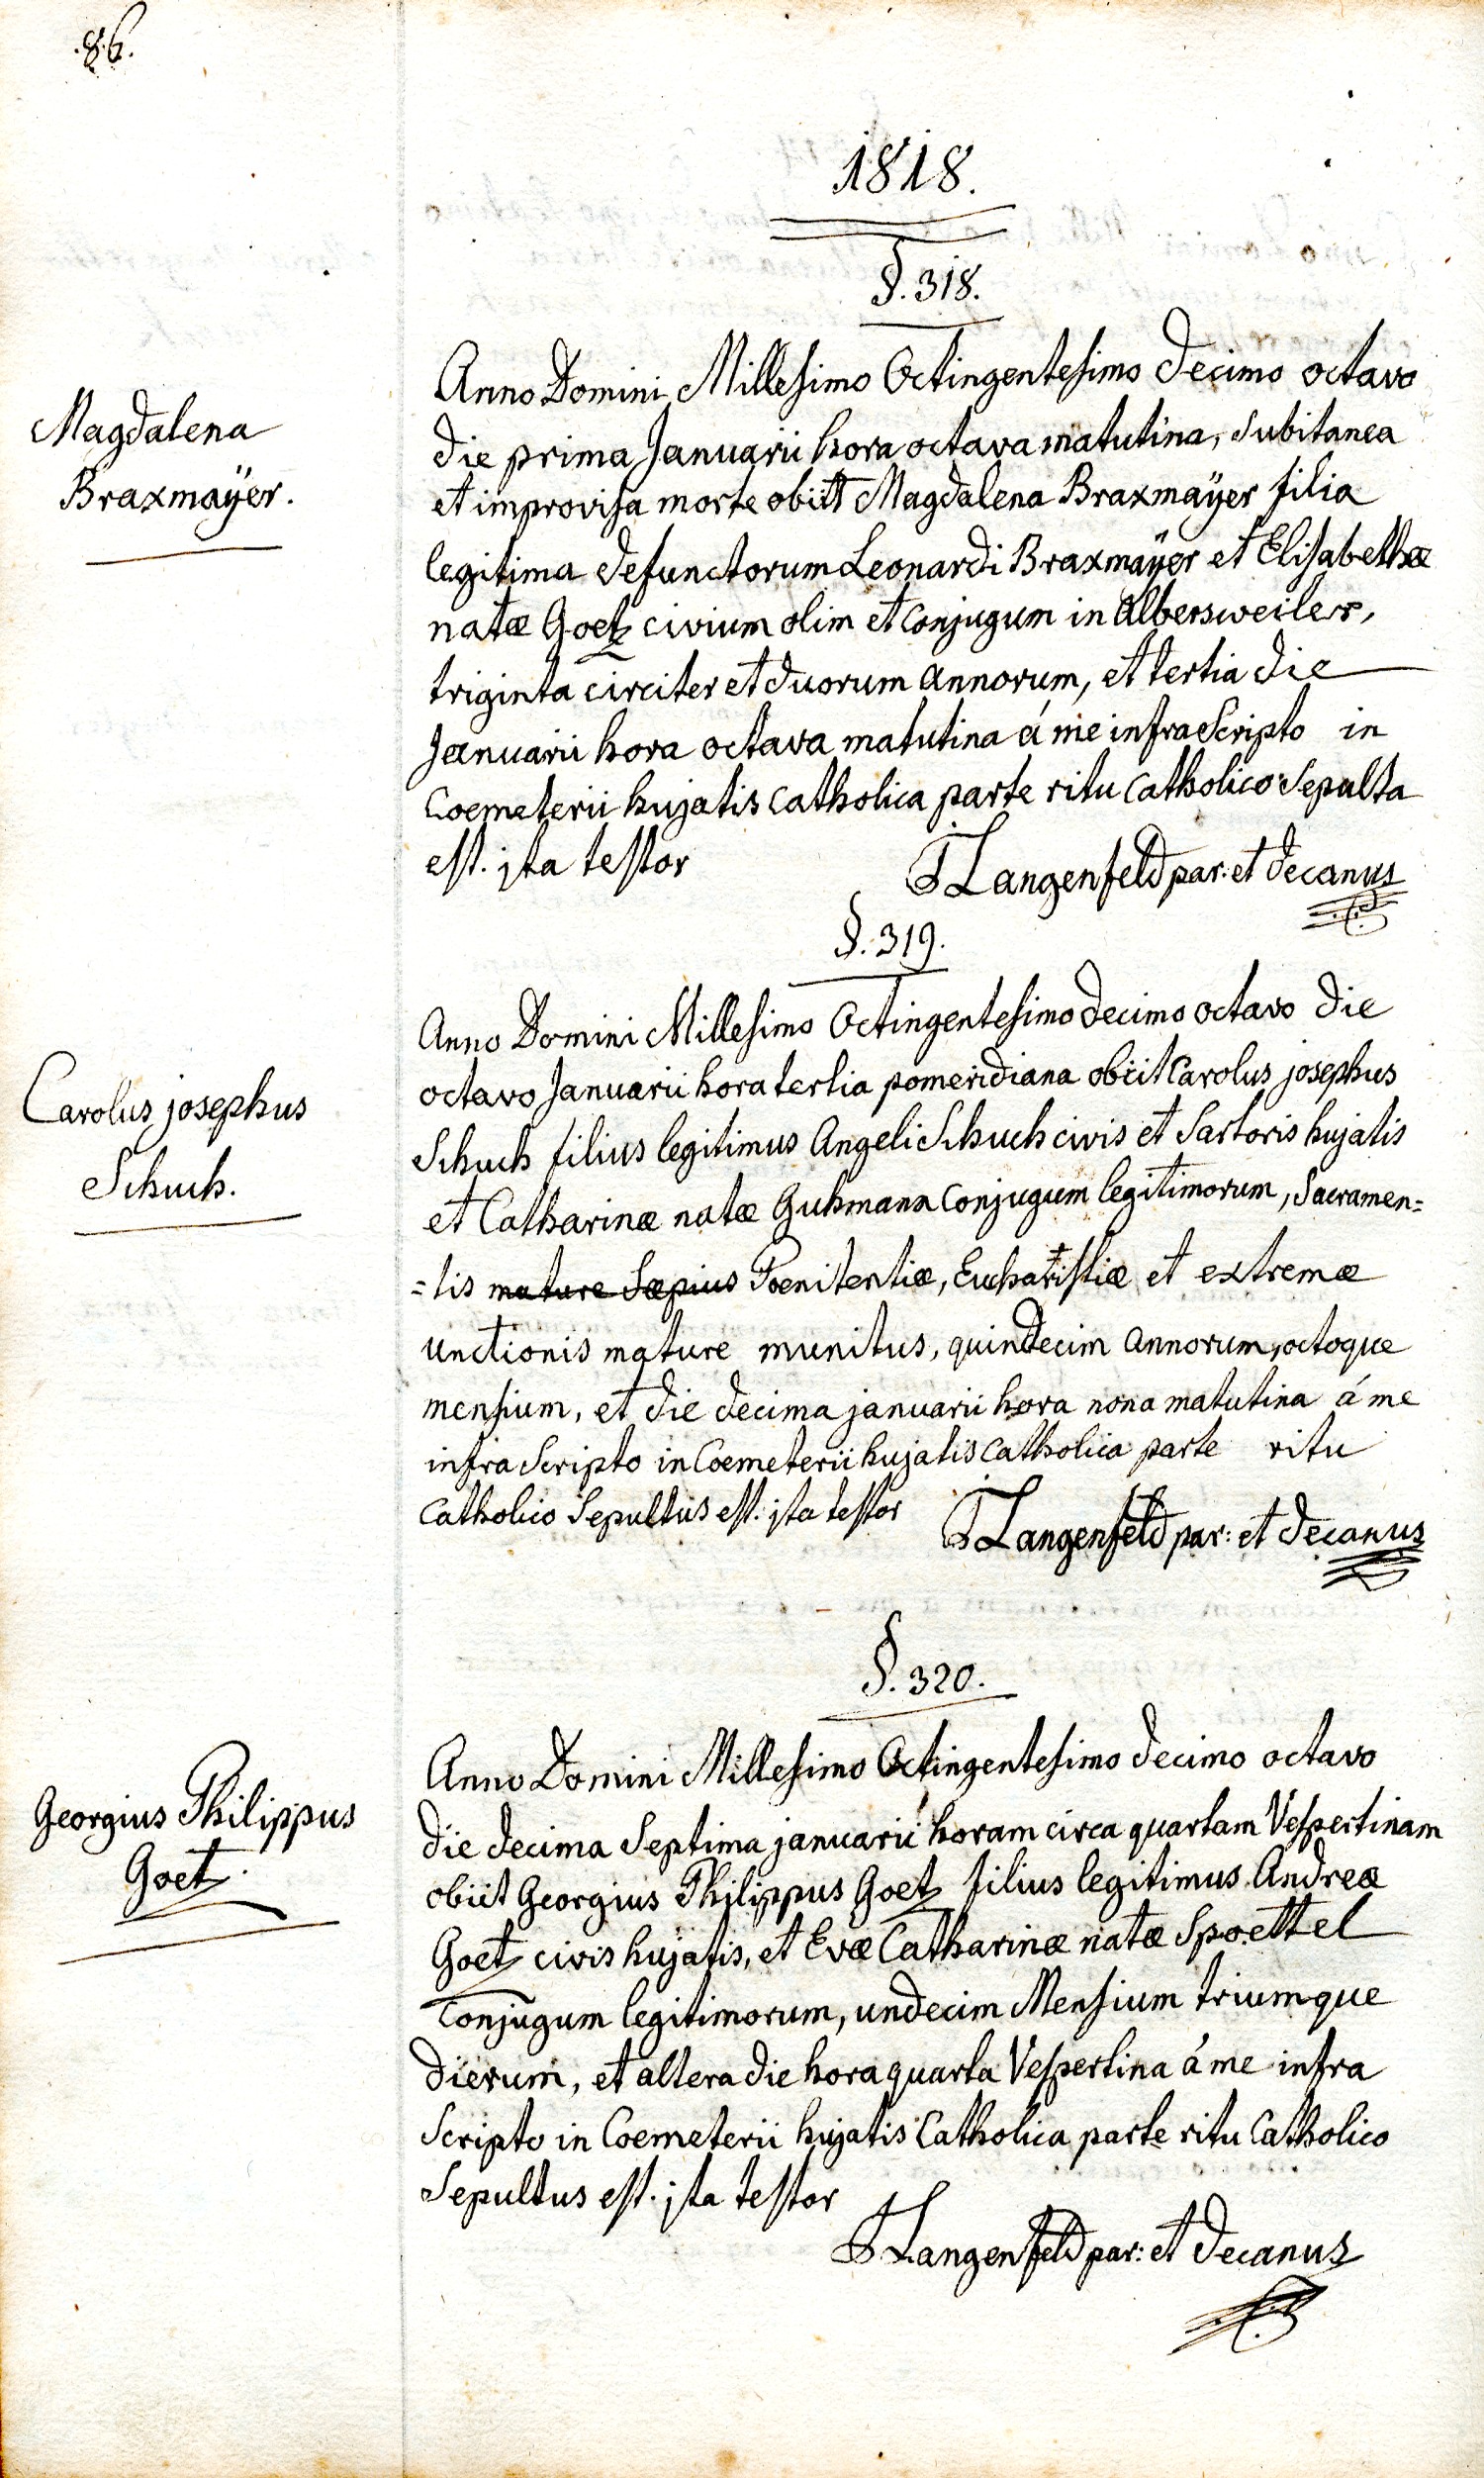 .86.
1818.
§. 318.
Magdalena
Braxmaÿer.
Anno Domini Millesimo Octingentesimo decimo octavo
die prima Januarii hora octava matutina, subitanea
et improvisa morte obiit Magdalena Braxmaÿer filia
legitima defunctorum Leonardi Braxmaÿer et Elisabethæ
natæ Goetz civium olim et Conjugum in Albersweiler,
triginta circiter et duorum annorum, et tertia die
Januarii hora octava matutina á me infra Scripto in
Coemeterii hujatis Catholica parte ritu Catholico Sepulta
est. jta testor
Langenfeld par: et decanus
§. 319.
Carolus josephus
Schuch.
Anno Domini Millesimo Octingentesimo decimo octavo die
octavo Januarii hora tertia pomeridiana obiit Carolus josephus
Schuch filius legitimus Angeli Schuch civis et Sartoris hujatis
et Catharinæ natæ Guhmann Conjugum legitimorum, Sacramen=
=tis mature Sæpius Poenitentiæ, Eucharistiæ et extremæ
unctionis mature munitus, quindecim annorum, octoque
mensium, et die decima januarii hora nona matutina á me
infra Scripto in Coemeterii hujatis Catholica parte ritu
Catholico Sepultus est. jta testor
Langenfeld par: et decanus
§. 320.
Georgius Philippus
Goetz.
Anno Domini Millesimo Octingentesimo decimo octavo
die decima Septima januarii horam circa quartam Vespertinam
obiit Georgius Philippus Goetz filius legitimus Andreæ
Goetz civis hujatis, et Evæ Catharinæ natæ Spoettel
Conjugum legitimorum, undecim Mensium triumque
dierum, et altera die hora quarta Vespertina á me infra
Scripto in Coemeterii hujatis Catholica parte ritu Catholico
Sepultus est. jta testor
Langenfeld par: et decanus